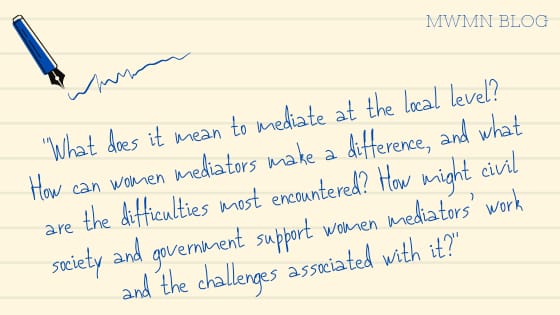 MWMN BLOG
"What does it mean to mediate at the local level?
How can women mediators make a difference, and what
are the difficulties most encountered? How might civil
society and government support women mediators' work
and the challenges associated with it?"